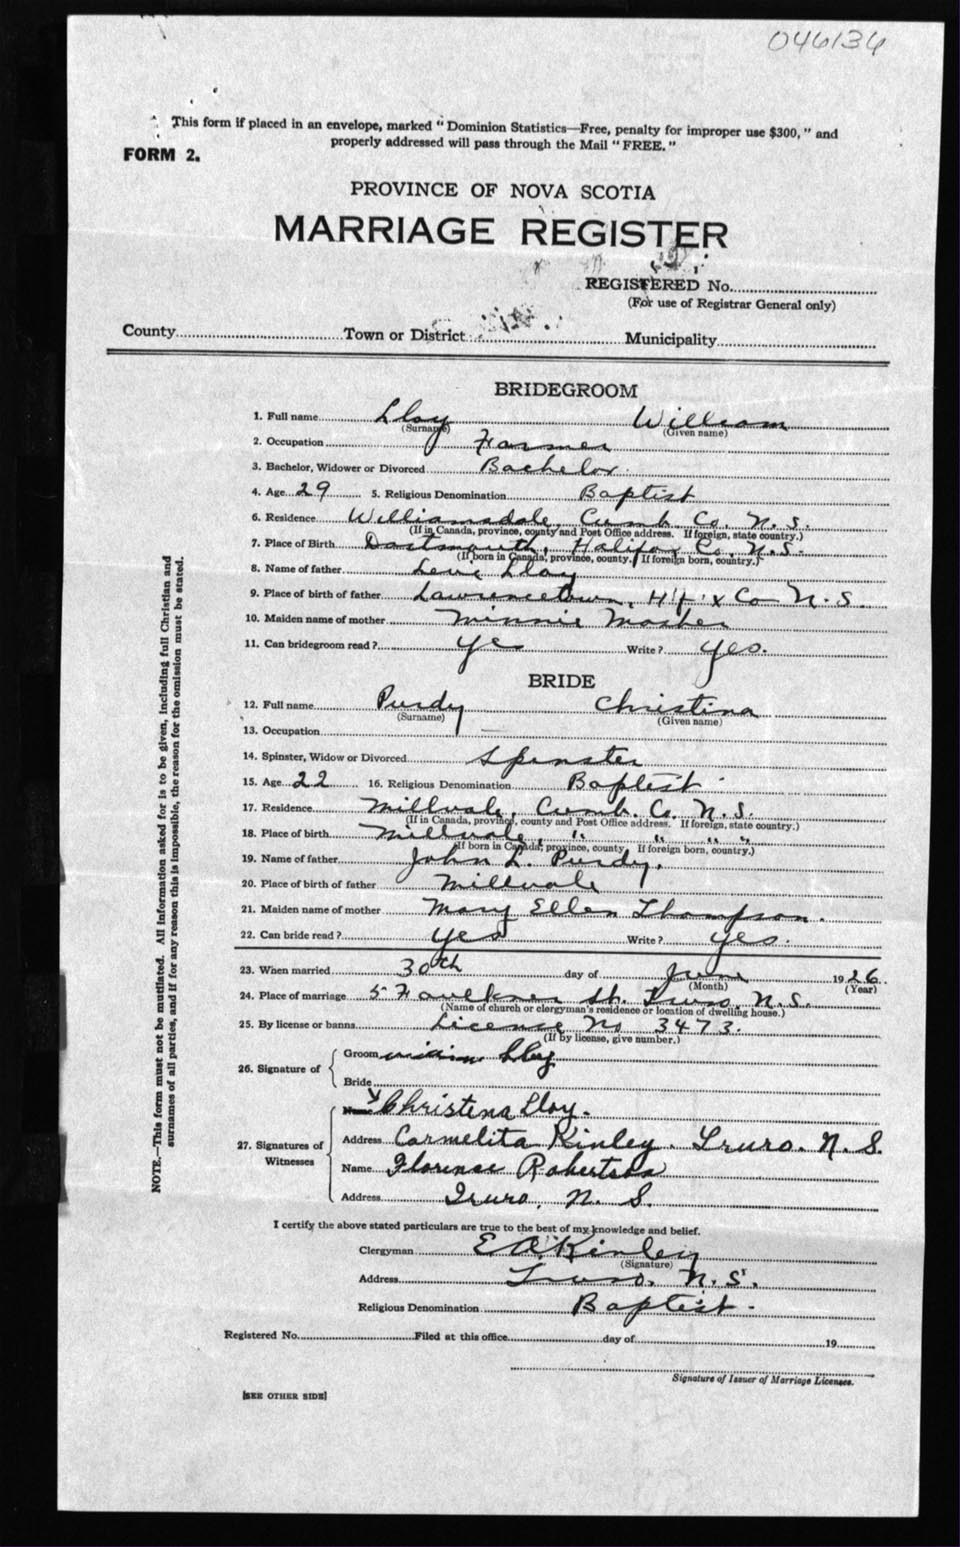 046136
This form if placed in an envelope, marked "Dominion Statistics—Free, penalty for improper use $300," and
properly addressed will pass through the Mail "FREE."
FORM 2.
PROVINCE OF NOVA SCOTIA
MARRIAGE REGISTER
REGISTERED No.
(For use of Registrar General only)
County Town or District Municipality
BRIDEGROOM
1. Full name Lloy William
(Surname) (Given name)
2. Occupation Farmer
3. Bachelor, Widower or Divorced Bachelor.
4. Age 29 5. Religious Denomination Baptist
6. Residence Williamsdale, Cumb. Co. N. S.
(If in Canada, province, county and Post Office address. If foreign, state country.)
7. Place of Birth Dartmouth, Halifax Co. N.S.
(If born in Canada, province, county. If foreign born, country.)
8. Name of father Levi Lloy
9. Place of birth of father Lawrencetown, H'f'x Co N. S.
10. Maiden name of mother Minnie Mosher
11. Can bridegroom read? yes Write? yes.
BRIDE
12. Full name Purdy Christina
(Surname) (Given name)
13. Occupation —
14. Spinster, Widow or Divorced Spinster
15. Age 22 16. Religious Denomination Baptist
17. Residence Millvale, Cumb. Co. N.S.
(If in Canada, province, county and Post Office address. If foreign, state country.)
18. Place of birth Millvale, " " " "
(If born in Canada, province, county. If foreign born, country.)
19. Name of father John L. Purdy.
20. Place of birth of father Millvale
21. Maiden name of mother Mary Ellen Thompson.
22. Can bride read? yes Write? yes.
23. When married 30th day of June 1926
(Month) (Year)
24. Place of marriage 5 Faulkner St. Truro, N.S.
(Name of church or clergyman's residence or location of dwelling house.)
25. By license or banns License No 3473.
(If by license, give number.)
26. Signature of Groom William Lloy
Bride
Name Christina Lloy.
27. Signatures of Witnesses Address Carmelita Kinley. Truro. N. S.
Name Florence Robertson
Address Truro, N. S.
I certify the above stated particulars are true to the best of my knowledge and belief.
Clergyman E A Kinley
(Signature)
Address Truro, N. S.
Religious Denomination Baptist.
Registered No. Filed at this office day of 19
Signature of Issuer of Marriage Licenses.
[SEE OTHER SIDE]
NOTE.—This form must not be mutilated. All information asked for is to be given, including full Christian and
surnames of all parties, and if for any reason this is impossible, the reason for the omission must be stated.